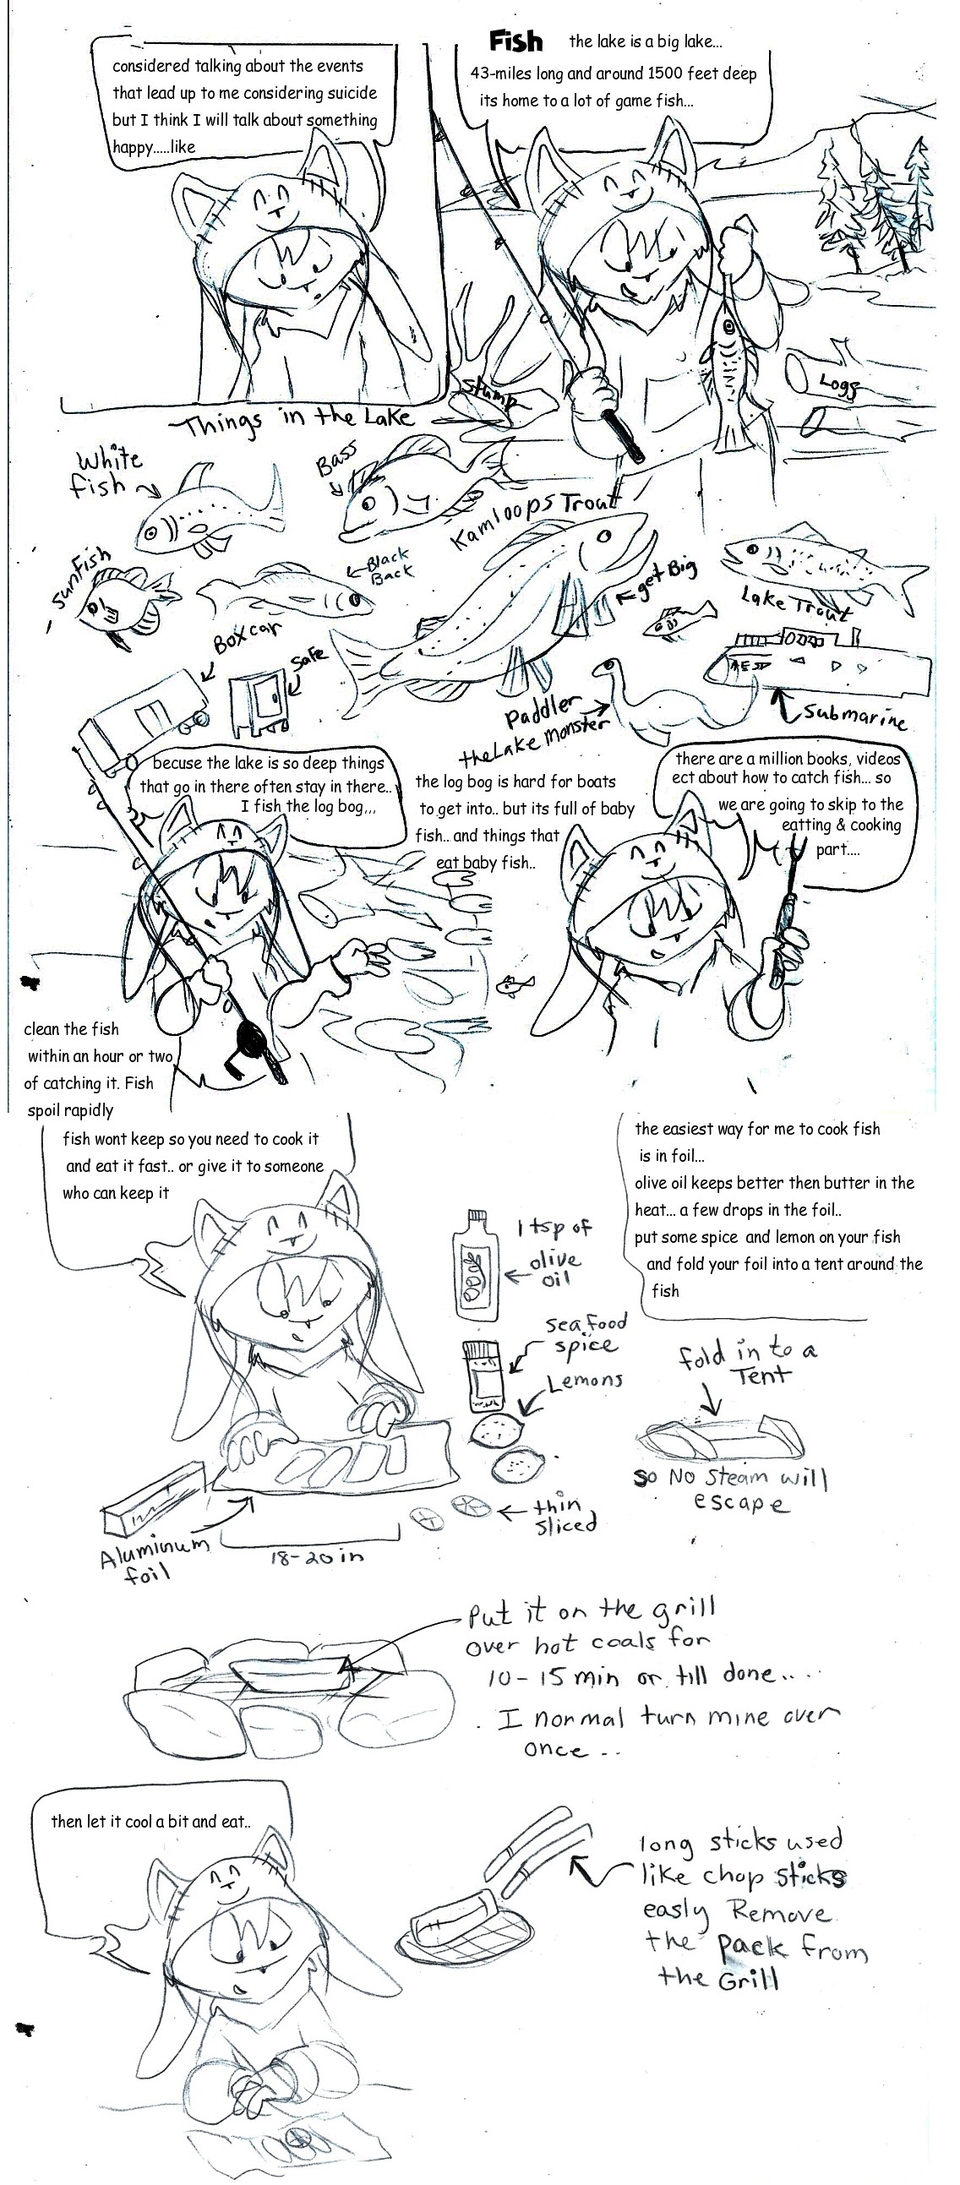 considered talking about the events
that lead up to me considering suicide
but I think I will talk about something
happy.....like
Fish the lake is a big lake...
43-miles long and around 1500 feet deep
its home to a lot of game fish...
Stump
Logs
Things in the Lake
White
fish
Bass
Kamloops Trout
get Big
Sunfish
Black
Back
Lake Trout
Boxcar
Safe
Paddler
the Lake Monster
Submarine
becuse the lake is so deep things
that go in there often stay in there..
I fish the log bog,,,
the log bog is hard for boats
to get into.. but its full of baby
fish.. and things that
eat baby fish..
there are a million books, videos
ect about how to catch fish... so
we are going to skip to the
eatting & cooking
part....
clean the fish
within an hour or two
of catching it. Fish
spoil rapidly
fish wont keep so you need to cook it
and eat it fast.. or give it to someone
who can keep it
the easiest way for me to cook fish
is in foil...
olive oil keeps better then butter in the
heat... a few drops in the foil..
put some spice and lemon on your fish
and fold your foil into a tent around the
fish
1 tsp of
olive
oil
seafood
spice
Lemons
thin
sliced
Aluminum
foil
18-20 in
fold in to a
Tent
so No Steam will
escape
Put it on the grill
over hot coals for
10-15 min or till done....
I normal turn mine over
once ..
then let it cool a bit and eat..
long sticks used
like chop sticks
easly Remove
the pack from
the Grill